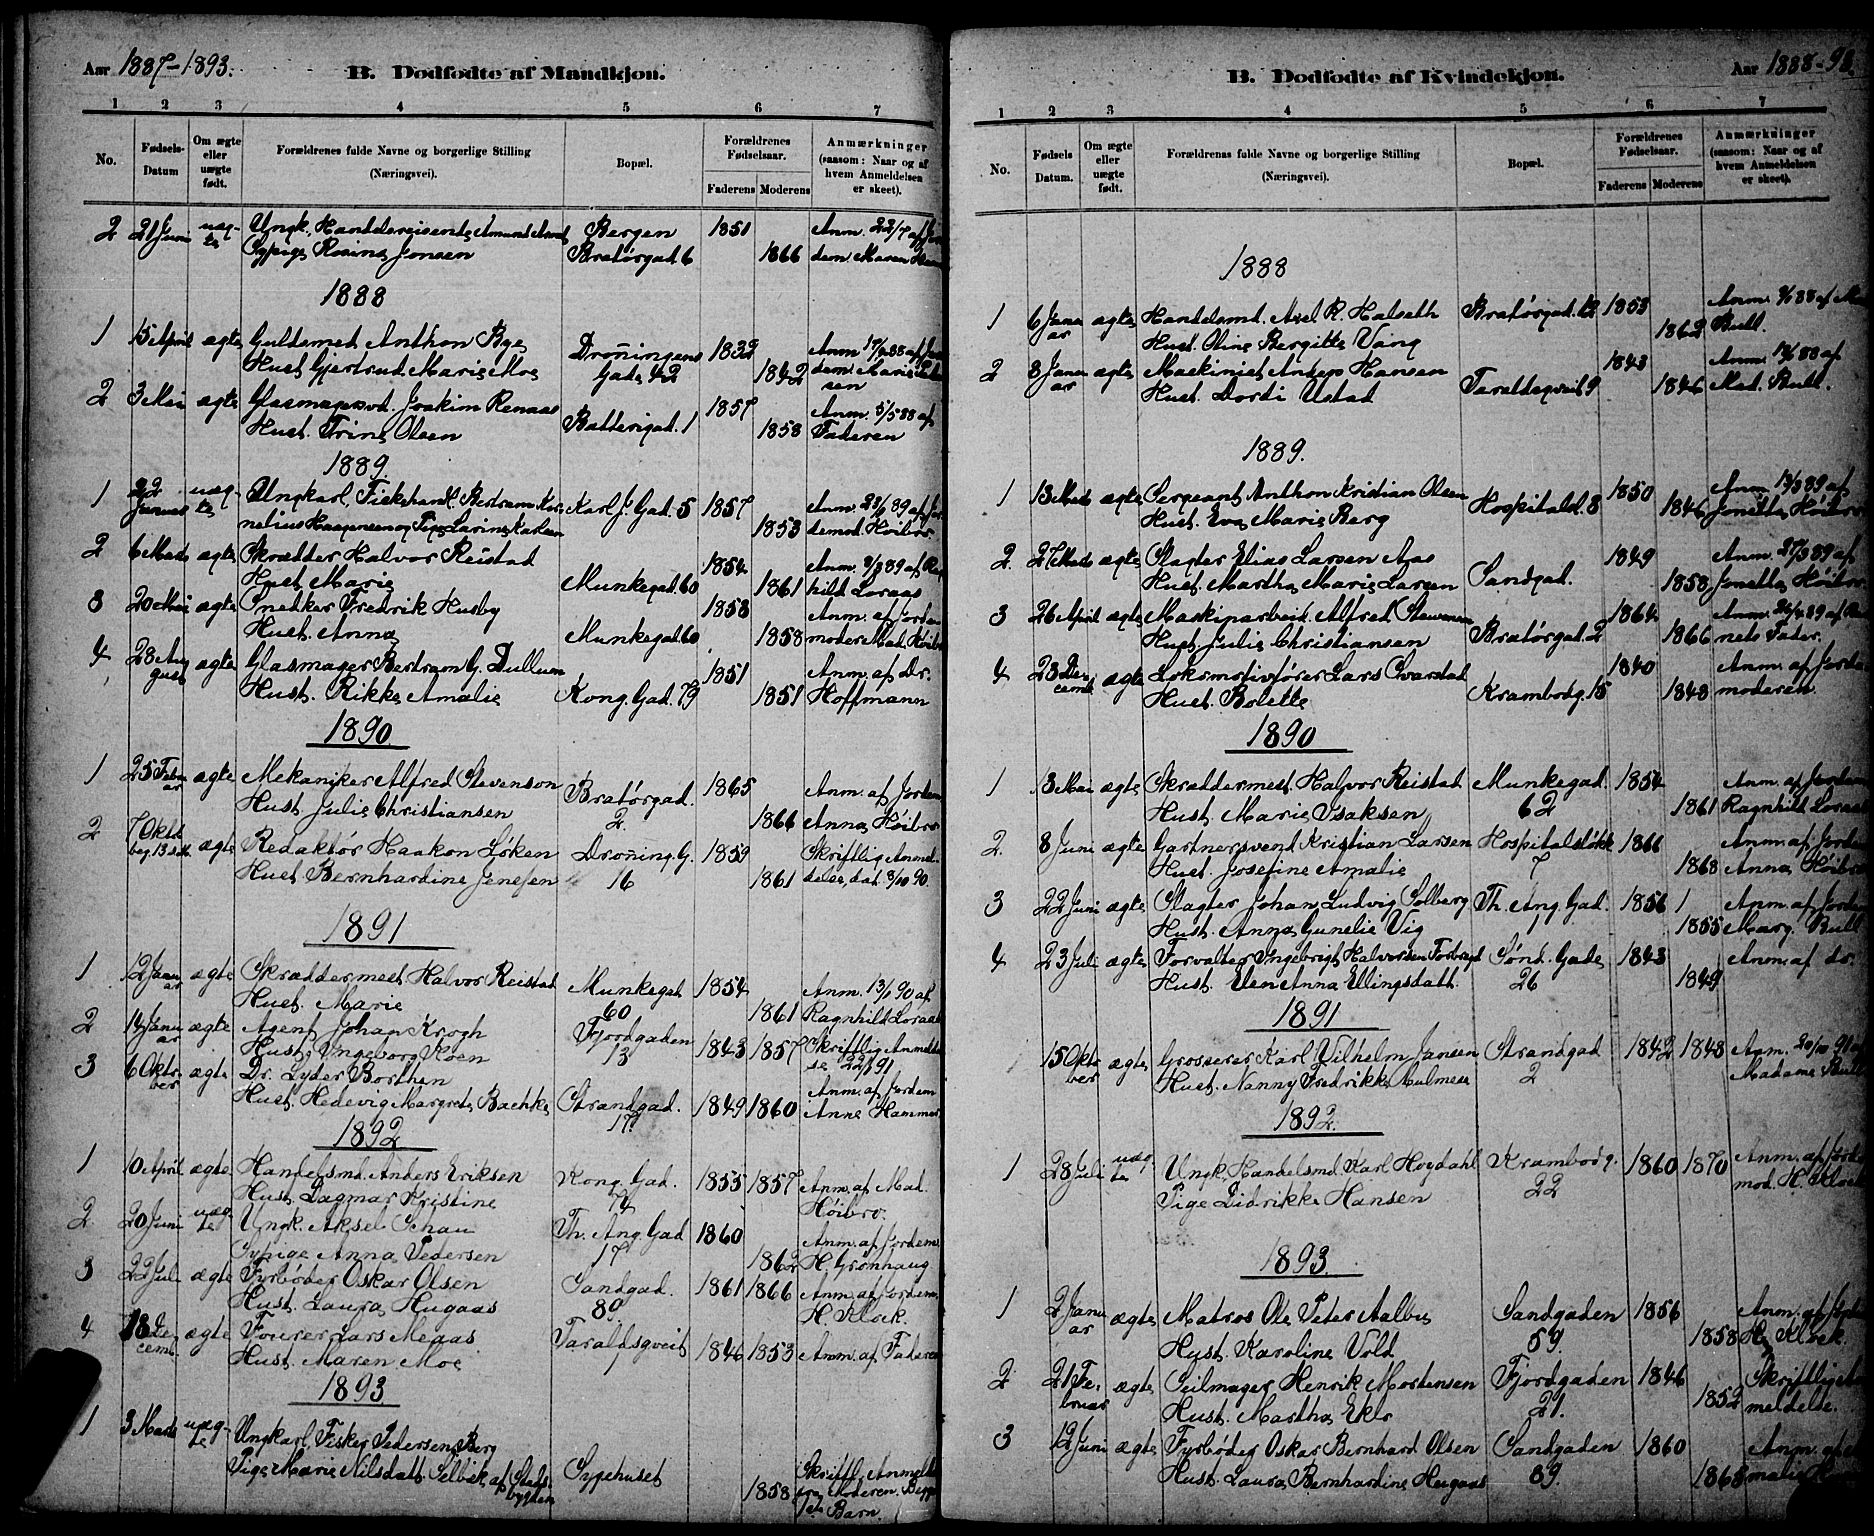 Aar 1887-1893.
B. Dødfødte af Mandkjøn.
1 2 3 4 5 6 7
No.
Fødsels-
Datum
Om ægte
eller
uægte
født.
Forældrenes fulde Navne og borgerlige Stilling
(Næringsvei).
Bopæl.
Forældrenes
Fødselsaar.
Faderens Moderens
Anmærkninger
(saasom: Naar og af
hvem Anmeldelsen
er skeet).
2 21 Juni uæg- Ungk. Handelsreisende Amund Bergen 1851 Anm. 22/7 af
te Sypige Rosine Jonsen Bratørgad 6 1866 dem. Maren
1888
1 15 April ægte Guldsmed Anthon Bye Dronningens 1832 Anm 17/4 88 af
Hust Gjertrud Marie Moe Gade 42 1842 dem. Marie
sen
2 3 Mai ægte Glasmagersvd. Joakim Renaas Batterigad. 1 1857 Anm. 5/5 88 af
Hust. Trine Olsen 1858 Faderen
1889.
1 22 Januar uæg- Ungkarl, Fiskehandl. Bertram Kor- Karl J. Gad. 5 1857 Anm. 28/1 89 af Jor
te nelius Haagensen og Pige Larine Karlsen 1853 demod. Høibro
2 6 Mads ægte Skrædder Halvor Reistad Munkegad 60 1854 Anm. 8/3 89 af
Hust Marie 1861 hild Loraas
3 20 Mai ægte Snedker Fredrik Husby Munkegad 60 1858 Anm. af Jordem
Hust. Anna 1858 moder Mad. Høibro
4 28 Au ægte Glasmager Bertram G. Dullum Kong. Gad. 79 1851 Anm. af Dr.
gust Hust. Rikke Amalie 1851 Hoffmann
1890
1 25 Febru ægte Mekaniker Alfred Stevenson Bratørgad. 1865 Anm. af Jordem
ar Hust. Julie Christiansen 2. 1866 Anna Høibro
2 7 Oktb ægte Redaktør Haakon Løken Dronning. G. 1859 Skriftlig Anmel-
beg. 13 Hust Bernhardine Jensen 16 1861 delse, dat. 8/10 90.
1891
1 12 Janu ægte Skræddermest Halvor Reistad Munkegat 1854 Anm. 13/1 90 af
ar Hust. Marie 60 1861 Ragnhild Loraas
2 14 Janu ægte Agent Johan Krogh Fjordgaden 1843 1857 Skriftlig Anmeldel
ar Hust. Ingeborg Koen 13 se 22/1 91
3 6 Okto ægte Dr. Lyder Borthen Strandgad. 1849 1860 Anm. af Jordem
ber Hust. Hedevig Margrete Bachke 17 Anne Hammer
1892
1 10 April ægte Handelsmd. Anders Eriksen Kong. Gad. 1855 1857 Anm. af Mad.
Hust. Dagmar Kristine Høibro.
2 20 Juni uæg- Ungk. Aksel Schau Th. Ang. Gad 1860 Anm. af Jordem.
te Sypige Anna Pedersen 17 1862 H. Grønhaug
3 22 Juli ægte Fyrbøder Oskar Olsen Sandgad. 1861 1866 Anm. af Jordem.
Hust. Laura Hugaas 89 H. Klock.
4 18 De ægte Fourer Lars Meaas Taraldsgveit 1846 1853 Anm. af Faderen
cemb. Hust. Maren Moe 1
1893
1 3 Mads uæg- Ungkarl Fisker Pedersen Berg
te Pige Marie Nilsdatt. Selbek af Stads- Sygehuset 1858 Skriftl. Anmeld
bygden fra Moderen. Begges
1ste Barn.
B. Dødfødte af Kvindekjøn.
Aar 1888-93.
1 2 3 4 5 6 7
No.
Fødsels
Datum.
Om ægte
eller
uægte
født.
Forældrenas fulde Navne og borgerlige Stilling
(Næringsvei).
Bopæl.
Forældrenes
Fødselsaar.
Faderens Moderens
Anmærkninger
(saasom: Naar og af
hvem Anmeldelsen
er skeet).
1888
1 6 Janu ægte Handelsmd. Axel R. Halseth Bratørgad. 12 1853 Anm. 9/1 88 af
ar Hust. Oline Bergitte Vang 1862 Bull.
2 8 Janu ægte Maskinist Anders Hansen Taraldsgveit 9 1843 Anm. 14/1 88 af
ar Hust. Dordi Ustad 1846 Mad. Bull.
1889.
1 13 Mads ægte Sergeant Anthon Kristian Olsen Hospitalsl. 8 1850 Anm. 13/3 89 af
Hust. Eva Marie Berg 1846 Jonetta Høibro
2. 27 Mads ægte Slagter Elias Larsen Aas Sandgad. 1849 Anm. 27/3 89 af
Hust. Martha Marie Larsen 1858 Jonetta Høibro
3 26 April ægte Maskinarbeid. Alfred Stevenson Bratørgad. 2 1864 Anm. 26/4 89 af Bar
Hust. Julie Christiansen 1866 nets Fader.
4 23 De ægte Lokomotivfører Lars Ovarstad Krambodg. 15 1840 Anm. af Jorde
cemb Hust. Bolette 1848 moderen.
1890
1 13 Mai ægte Skræddermest. Halvor Reistad Munkegad. 1854 Anm. af Jordem
Hust. Marie Isaksen 62 1861 Ragnhild Loraas
2. 8 Juni ægte Gartnersvend Kristian Larsen Hospitalsløkk 1866 Anm. af Jordem
Hust. Josefine Amalie 7 1868 Anna Høibro
3 22 Juni ægte Slagter Johan Ludvig Solberg Th. Ang. Gad. 1856 Anm. af Jordem
Hust. Anna Gunelie Vig 1 1855 Marg. Bull
4 23 Juli ægte Forvalter Ingebrigt Halvorsen Forbregd Sønd. Gade 1843 Anm. af Dr.
Hust. Elen Anna Ellingsdatt. 26 1849
1891
15 Okto ægte Grosserer Karl Vilhelm Jansen Strandgad 1842 1848 Anm. 20/10 91 af
ber Hust. Nanny Fredrikke Mulmese 2 Madame Bull
1892.
1 28 Juli uæg Ungk. Handelsmd. Karl Høydahl Krambodg. 1860 1870 Anm. af Jorde
te Pige Didrikke Hansen 22 mod. H. Klock
1893.
1 2 Janu ægte Matros Ole Peter Aalbu Sandgaden 1856 Anm. af Jordem
ar Hust. Karoline Vold 59. 1858 H. Klock.
2 21 Fe- ægte Seilmager Henrik Mortensen Fjordgaden 1846 Skriftlig An
bruar Hust. Martha Eklo 21. 1852 meldelse.
3 12 Juni ægte Fyrbøder Oskar Bernhard Olsen Sandgaden 1860 Anm. af
Hust. Laura Bernhardine Hugaas 89. 1868